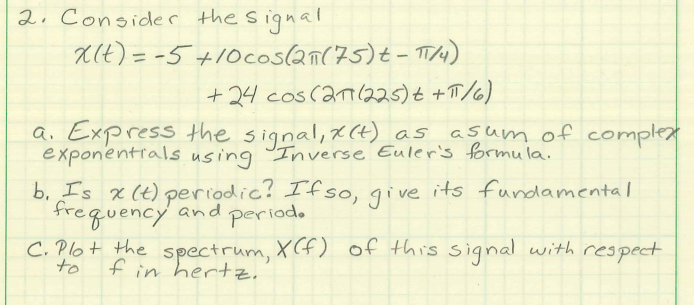 2. Consider the signal
x(t) = -5 + 10cos(2π(75)t - π/4)
+ 24 cos(2π(225)t + π/6)
a. Express the signal, x(t) as a sum of complex
exponentials using Inverse Euler's formula.
b. Is x(t) periodic? If so, give its fundamental
frequency and period.
C. Plot the spectrum, X(f) of this signal with respect
to f in hertz.